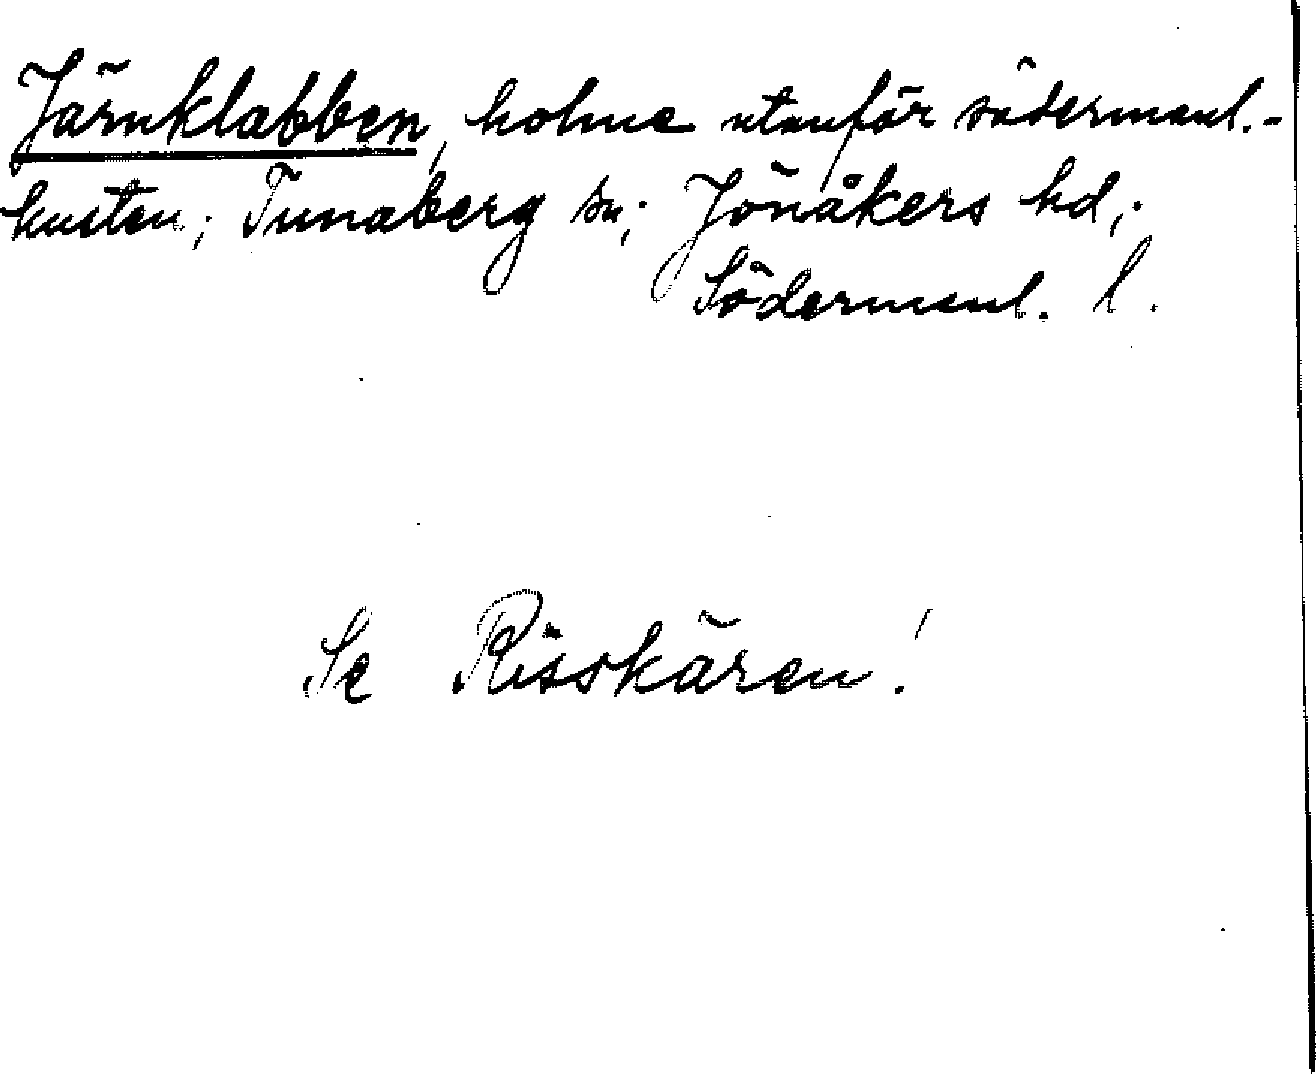 Järnklabben, holme utanför södermanl.-
kusten; Tunaberg sn; Jönåkers hd;
Södermanl. l.
Se Risskären!